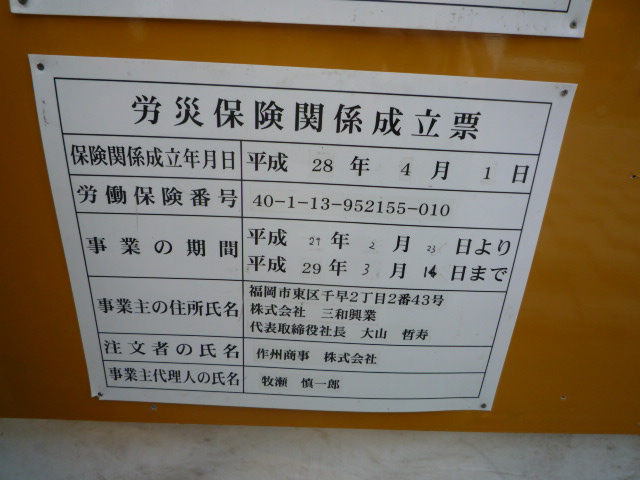 労災保険関係成立票
保険関係成立年月日 平成 28 年 4 月 1 日
労働保険番号 40-1-13-952155-010
事業の期間 平成 年 2 月 日より
平成 29 年 3 月 日まで
事業主の住所氏名 福岡市東区千早2丁目2番43号
株式会社 三和興業
代表取締役社長 大山 哲寿
注文者の氏名 作州商事 株式会社
事業主代理人の氏名 牧瀬 慎一郎